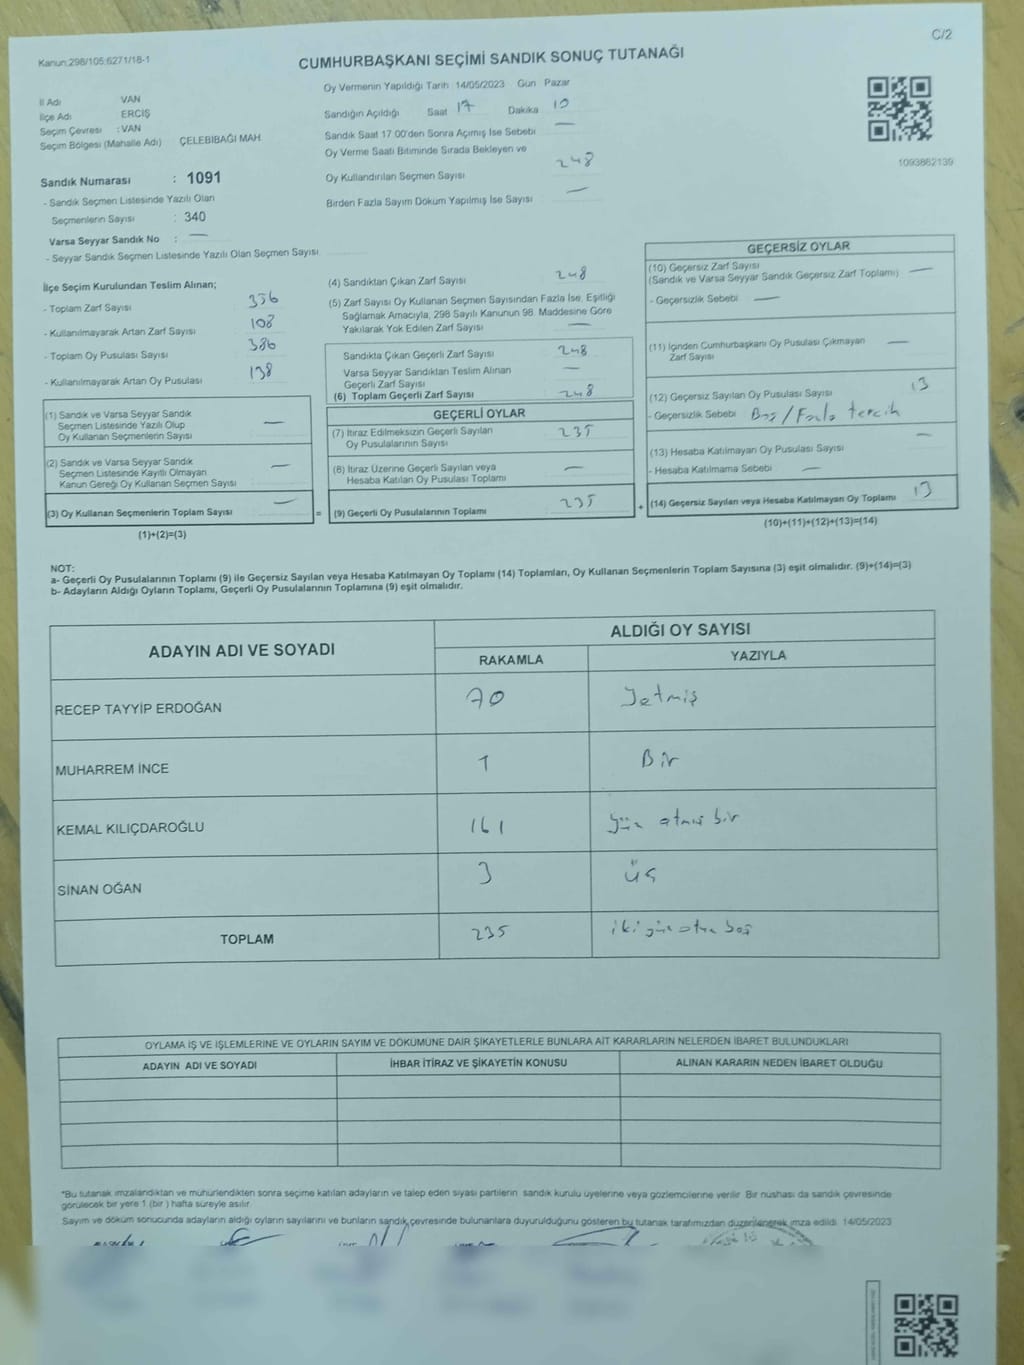 C/2
Kanun:298/105;6271/18-1
CUMHURBAŞKANI SEÇİMİ SANDIK SONUÇ TUTANAĞI
İl Adı VAN
İlçe Adı ERCİŞ
Seçim Çevresi : VAN
Seçim Bölgesi (Mahalle Adı) ÇELEBİBAĞI MAH.
Sandık Numarası : 1091
- Sandık Seçmen Listesinde Yazılı Olan
Seçmenlerin Sayısı : 340
Varsa Seyyar Sandık No : —
- Seyyar Sandık Seçmen Listesinde Yazılı Olan Seçmen Sayısı
Oy Vermenin Yapıldığı Tarih 14/05/2023 Gün Pazar
Sandığın Açıldığı Saat 17 Dakika 10
Sandık Saat 17.00'den Sonra Açımış İse Sebebi —
Oy Verme Saati Bitiminde Sırada Bekleyen ve
Oy Kullandırılan Seçmen Sayısı 248
Birden Fazla Sayım Döküm Yapılmış İse Sayısı —
1093862139
İlçe Seçim Kurulundan Teslim Alınan;
- Toplam Zarf Sayısı 356
- Kullanılmayarak Artan Zarf Sayısı 108
- Toplam Oy Pusulası Sayısı 386
- Kullanılmayarak Artan Oy Pusulası 138
(1) Sandık ve Varsa Seyyar Sandık
Seçmen Listesinde Yazılı Olup
Oy Kullanan Seçmenlerin Sayısı —
(2) Sandık ve Varsa Seyyar Sandık
Seçmen Listesinde Kayıtlı Olmayan
Kanun Gereği Oy Kullanan Seçmen Sayısı —
(3) Oy Kullanan Seçmenlerin Toplam Sayısı —
(1)+(2)=(3)
=
(4) Sandıktan Çıkan Zarf Sayısı 248
(5) Zarf Sayısı Oy Kullanan Seçmen Sayısından Fazla İse, Eşitliği
Sağlamak Amacıyla, 298 Sayılı Kanunun 98. Maddesine Göre
Yakılarak Yok Edilen Zarf Sayısı —
Sandıkta Çıkan Geçerli Zarf Sayısı 248
Varsa Seyyar Sandıktan Teslim Alınan
Geçerli Zarf Sayısı —
(6) Toplam Geçerli Zarf Sayısı 248
GEÇERLİ OYLAR
(7) İtiraz Edilmeksizin Geçerli Sayılan
Oy Pusulalarının Sayısı 235
(8) İtiraz Üzerine Geçerli Sayılan veya
Hesaba Katılan Oy Pusulası Toplamı —
(9) Geçerli Oy Pusulalarının Toplamı 235
+
GEÇERSİZ OYLAR
(10) Geçersiz Zarf Sayısı
(Sandık ve Varsa Seyyar Sandık Geçersiz Zarf Toplamı) —
- Geçersizlik Sebebi —
(11) İçinden Cumhurbaşkanı Oy Pusulası Çıkmayan
Zarf Sayısı —
(12) Geçersiz Sayılan Oy Pusulası Sayısı 13
- Geçersizlik Sebebi Boş/Fazla tercih
(13) Hesaba Katılmayan Oy Pusulası Sayısı —
- Hesaba Katılmama Sebebi —
(14) Geçersiz Sayılan veya Hesaba Katılmayan Oy Toplamı 13
(10)+(11)+(12)+(13)=(14)
NOT:
a- Geçerli Oy Pusulalarının Toplamı (9) ile Geçersiz Sayılan veya Hesaba Katılmayan Oy Toplamı (14) Toplamları, Oy Kullanan Seçmenlerin Toplam Sayısına (3) eşit olmalıdır. (9)+(14)=(3)
b- Adayların Aldığı Oyların Toplamı, Geçerli Oy Pusulalarının Toplamına (9) eşit olmalıdır.
ADAYIN ADI VE SOYADI ALDIĞI OY SAYISI
RAKAMLA YAZIYLA
RECEP TAYYİP ERDOĞAN 70 Yetmiş
MUHARREM İNCE 1 Bir
KEMAL KILIÇDAROĞLU 161 yüz atmış bir
SİNAN OĞAN 3 üç
TOPLAM 235 iki yüz otuz beş
OYLAMA İŞ VE İŞLEMLERİNE VE OYLARIN SAYIM VE DÖKÜMÜNE DAİR ŞİKAYETLERLE BUNLARA AİT KARARLARIN NELERDEN İBARET BULUNDUKLARI
ADAYIN ADI VE SOYADI İHBAR İTİRAZ VE ŞİKAYETİN KONUSU ALINAN KARARIN NEDEN İBARET OLDUĞU
*Bu tutanak imzalandıktan ve mühürlendikten sonra seçime katılan adayların ve talep eden siyasi partilerin sandık kurulu üyelerine veya gözlemcilerine verilir. Bir nüshası da sandık çevresinde
görülecek bir yere 1 (bir) hafta süreyle asılır.
Sayım ve döküm sonucunda adayların aldığı oyların sayılarını ve bunların sandık çevresinde bulunanlara duyurulduğunu gösteren bu tutanak tarafımızdan düzenlenerek imza edildi. 14/05/2023